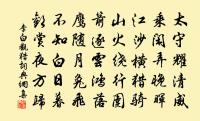 太守耀清威
乘閑弄晚暉
江沙橫獵騎
山火繞行圍
箭逐雲鴻落
鷹隨月兔飛
不知白日暮
歡賞夜方歸
李白觀獵詞典網集